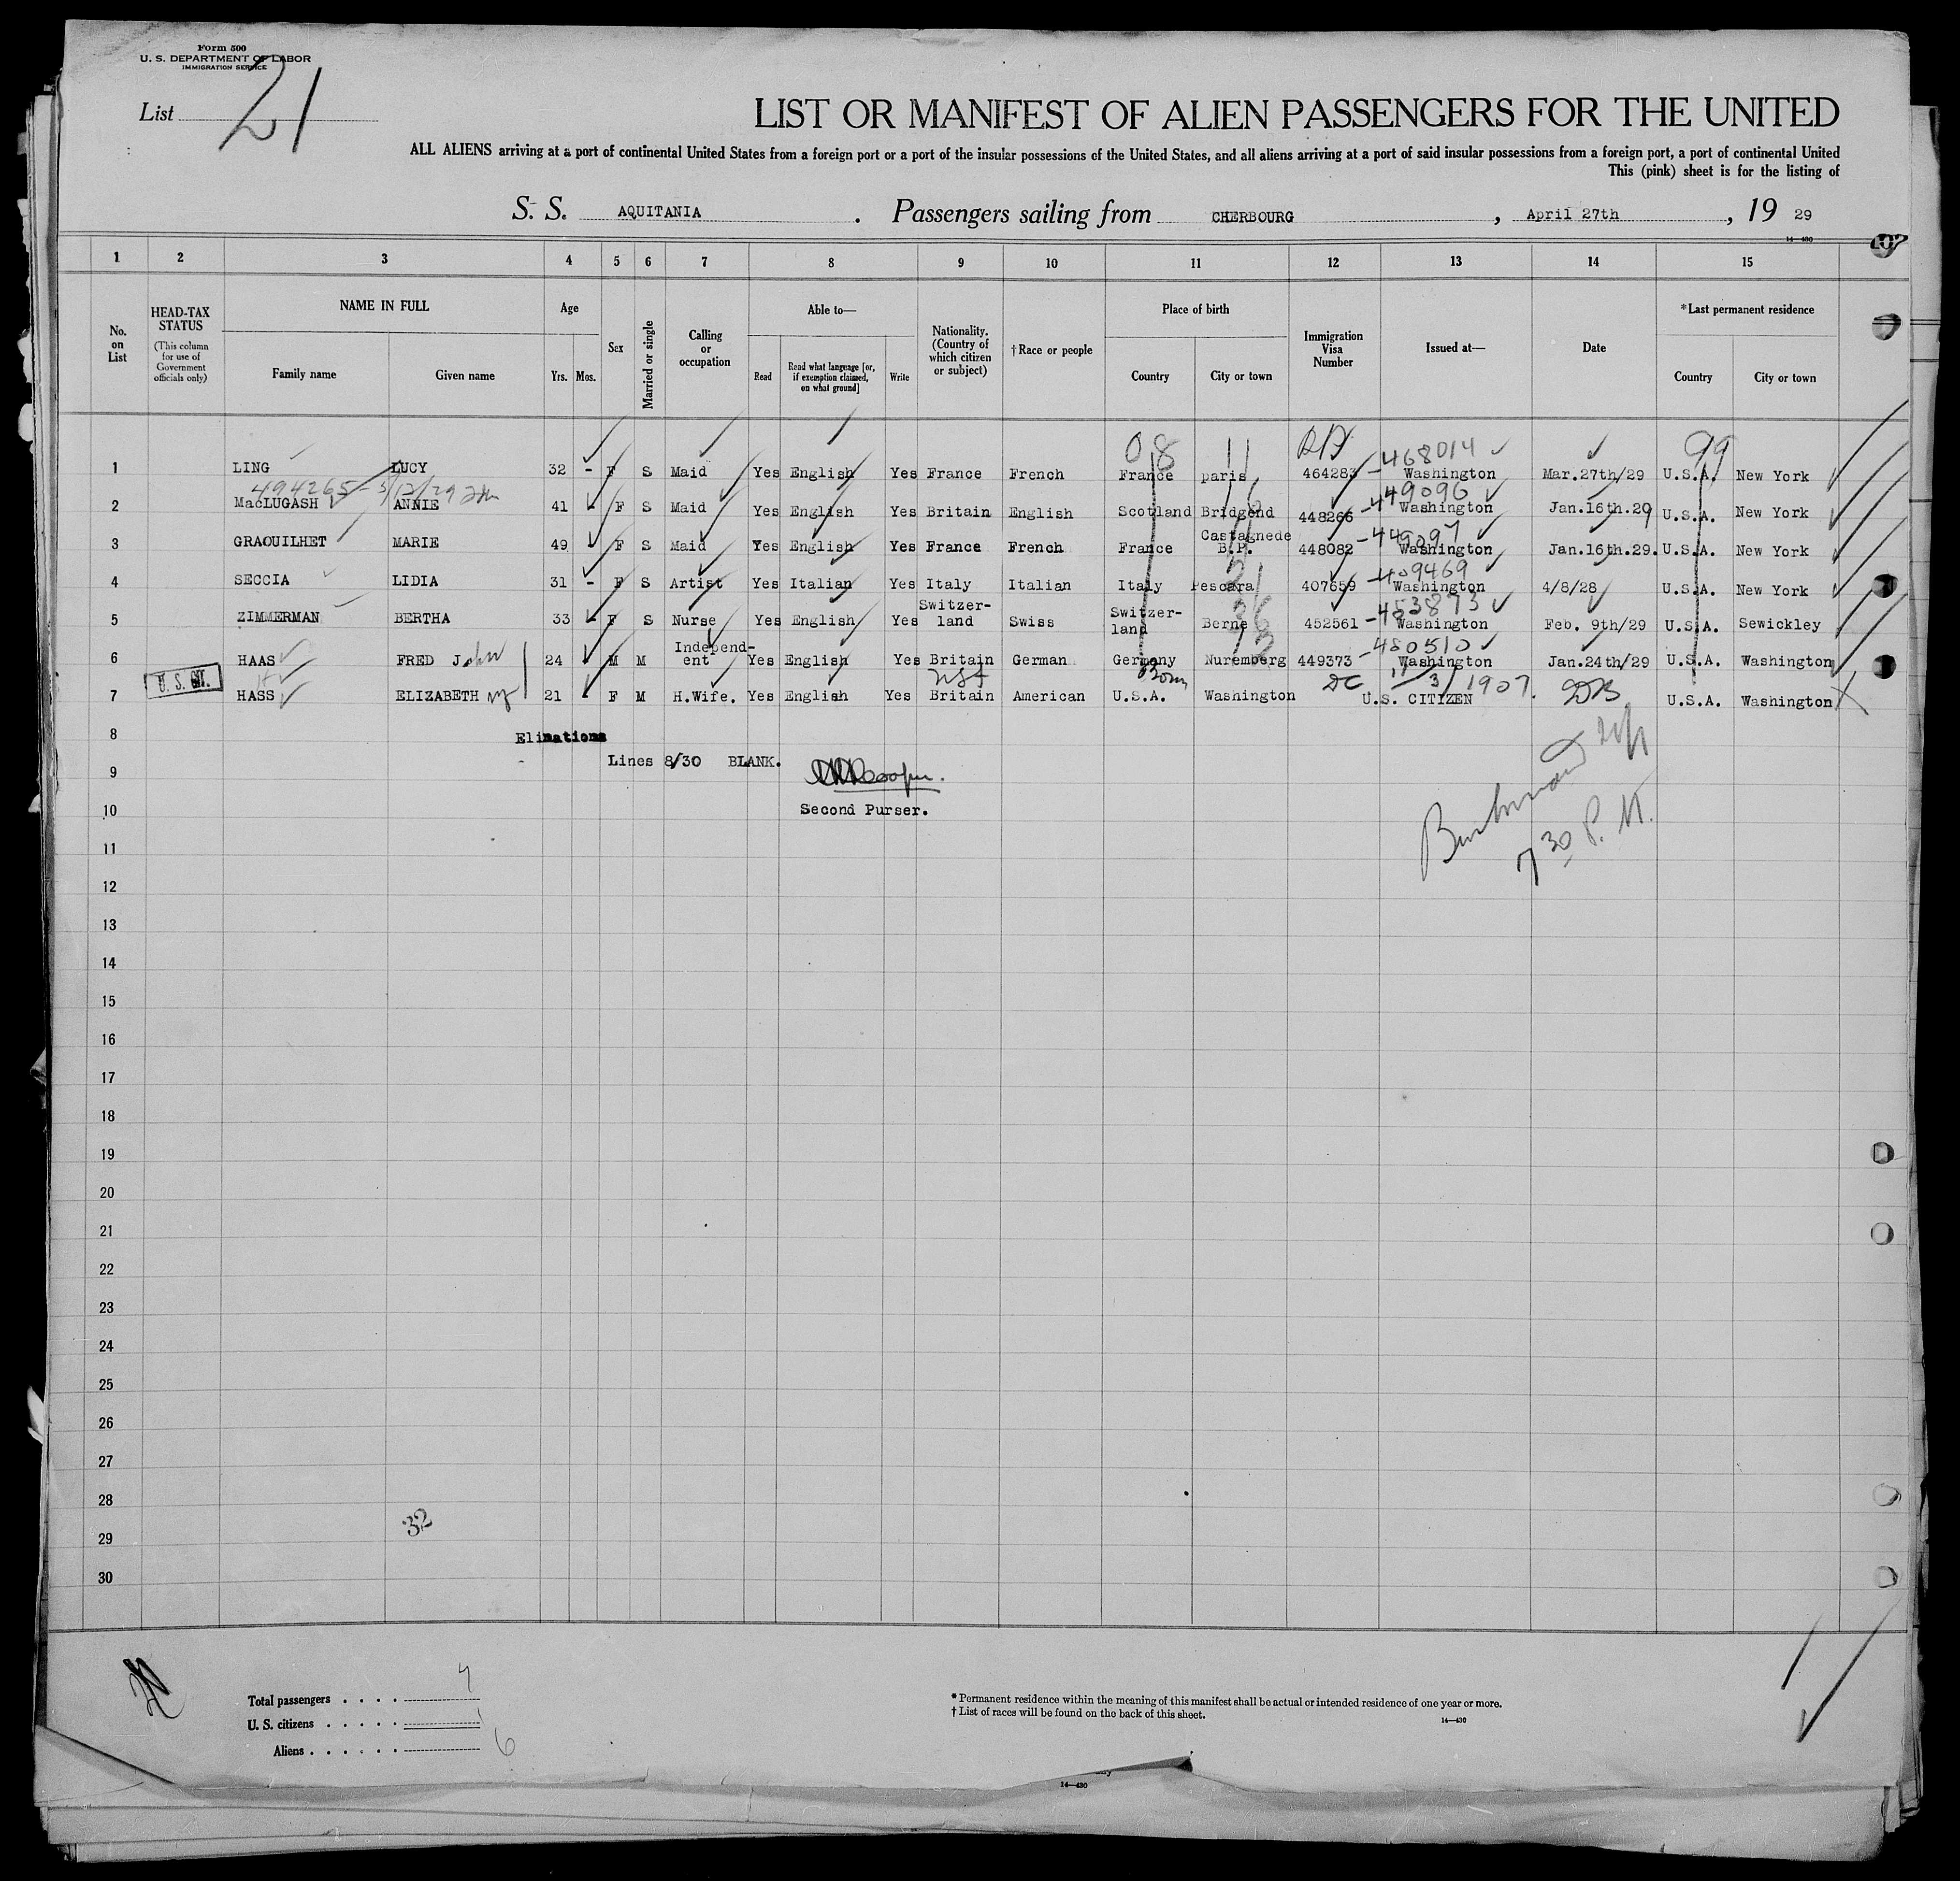 Form 500
U. S. DEPARTMENT OF LABOR
IMMIGRATION SERVICE
List 21
LIST OR MANIFEST OF ALIEN PASSENGERS FOR THE UNITED
ALL ALIENS arriving at a port of continental United States from a foreign port or a port of the insular possessions of the United States, and all aliens arriving at a port of said insular possessions from a foreign port, a port of continental United
This (pink) sheet is for the listing of
S. S. AQUITANIA . Passengers sailing from CHERBOURG , April 27th , 19 29
14—430
1 2 3 4 5 6 7 8 9 10 11 12 13 14 15
No. on List
HEAD-TAX STATUS
(This column for use of Government officials only)
NAME IN FULL
Family name Given name
Age
Yrs. Mos.
Sex
Married or single
Calling or occupation
Able to—
Read Read what language [or, if exemption claimed, on what ground] Write
Nationality. (Country of which citizen or subject)
†Race or people
Place of birth
Country City or town
Immigration Visa Number
Issued at—
Date
*Last permanent residence
Country City or town
08 11 99
468014
1 LING LUCY 32 - F S Maid Yes English Yes France French France paris 464283 Washington Mar.27th/29 U.S.A. New York
494265 - 5/13/29
449096
2 MacLUGASH ANNIE 41 - F S Maid Yes English Yes Britain English Scotland Bridgend 448266 Washington Jan.16th.29 U.S.A. New York
449097
3 GRAOUILHET MARIE 49 - F S Maid Yes English Yes France French France Castagnede B.P. 448082 Washington Jan.16th.29. U.S.A. New York
409469
4 SECCIA LIDIA 31 - F S Artist Yes Italian Yes Italy Italian Italy Pescara 407659 Washington 4/8/28 U.S.A. New York
453873
5 ZIMMERMAN BERTHA 33 - F S Nurse Yes English Yes Switzer- land Swiss Switzer- land Berne 452561 Washington Feb. 9th/29 U.S.A. Sewickley
480510
6 HAAS FRED John 24 M M Independ- ent Yes English Yes Britain German Germany Nuremberg 449373 Washington Jan.24th/29 U.S.A. Washington
U. S. CIT.
USA Born DC 11/3/1907.
7 HASS ELIZABETH 21 - F M H.Wife. Yes English Yes Britain American U.S.A. Washington U.S. CITIZEN U.S.A. Washington
8
Lines 8/30 BLANK.
9
Second Purser.
10
7 30 P. M.
11
12
13
14
15
16
17
18
19
20
21
22
23
24
25
26
27
28
32
29
30
Total passengers . . . . 7
U. S. citizens . . . . . 1
Aliens . . . . . . 6
* Permanent residence within the meaning of this manifest shall be actual or intended residence of one year or more.
† List of races will be found on the back of this sheet.
14—430
14—430